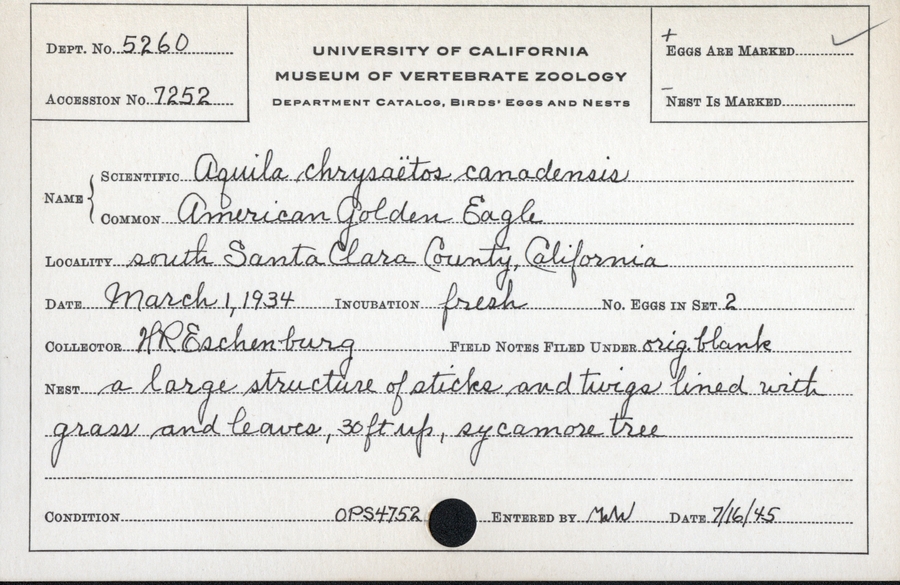 DEPT. No. 5260
ACCESSION No. 7252
UNIVERSITY OF CALIFORNIA
MUSEUM OF VERTEBRATE ZOOLOGY
DEPARTMENT CATALOG, BIRDS' EGGS AND NESTS
+ EGGS ARE MARKED ✓
– NEST IS MARKED
NAME { SCIENTIFIC Aquila chrysaëtos canadensis
COMMON American Golden Eagle
LOCALITY south Santa Clara County, California
DATE March 1, 1934 INCUBATION fresh No. EGGS IN SET 2
COLLECTOR HREschenburg FIELD NOTES FILED UNDER orig. blank
NEST a large structure of sticks and twigs lined with
grass and leaves, 30 ft up, sycamore tree
CONDITION OPS4752 ENTERED BY MWW DATE 7/16/45